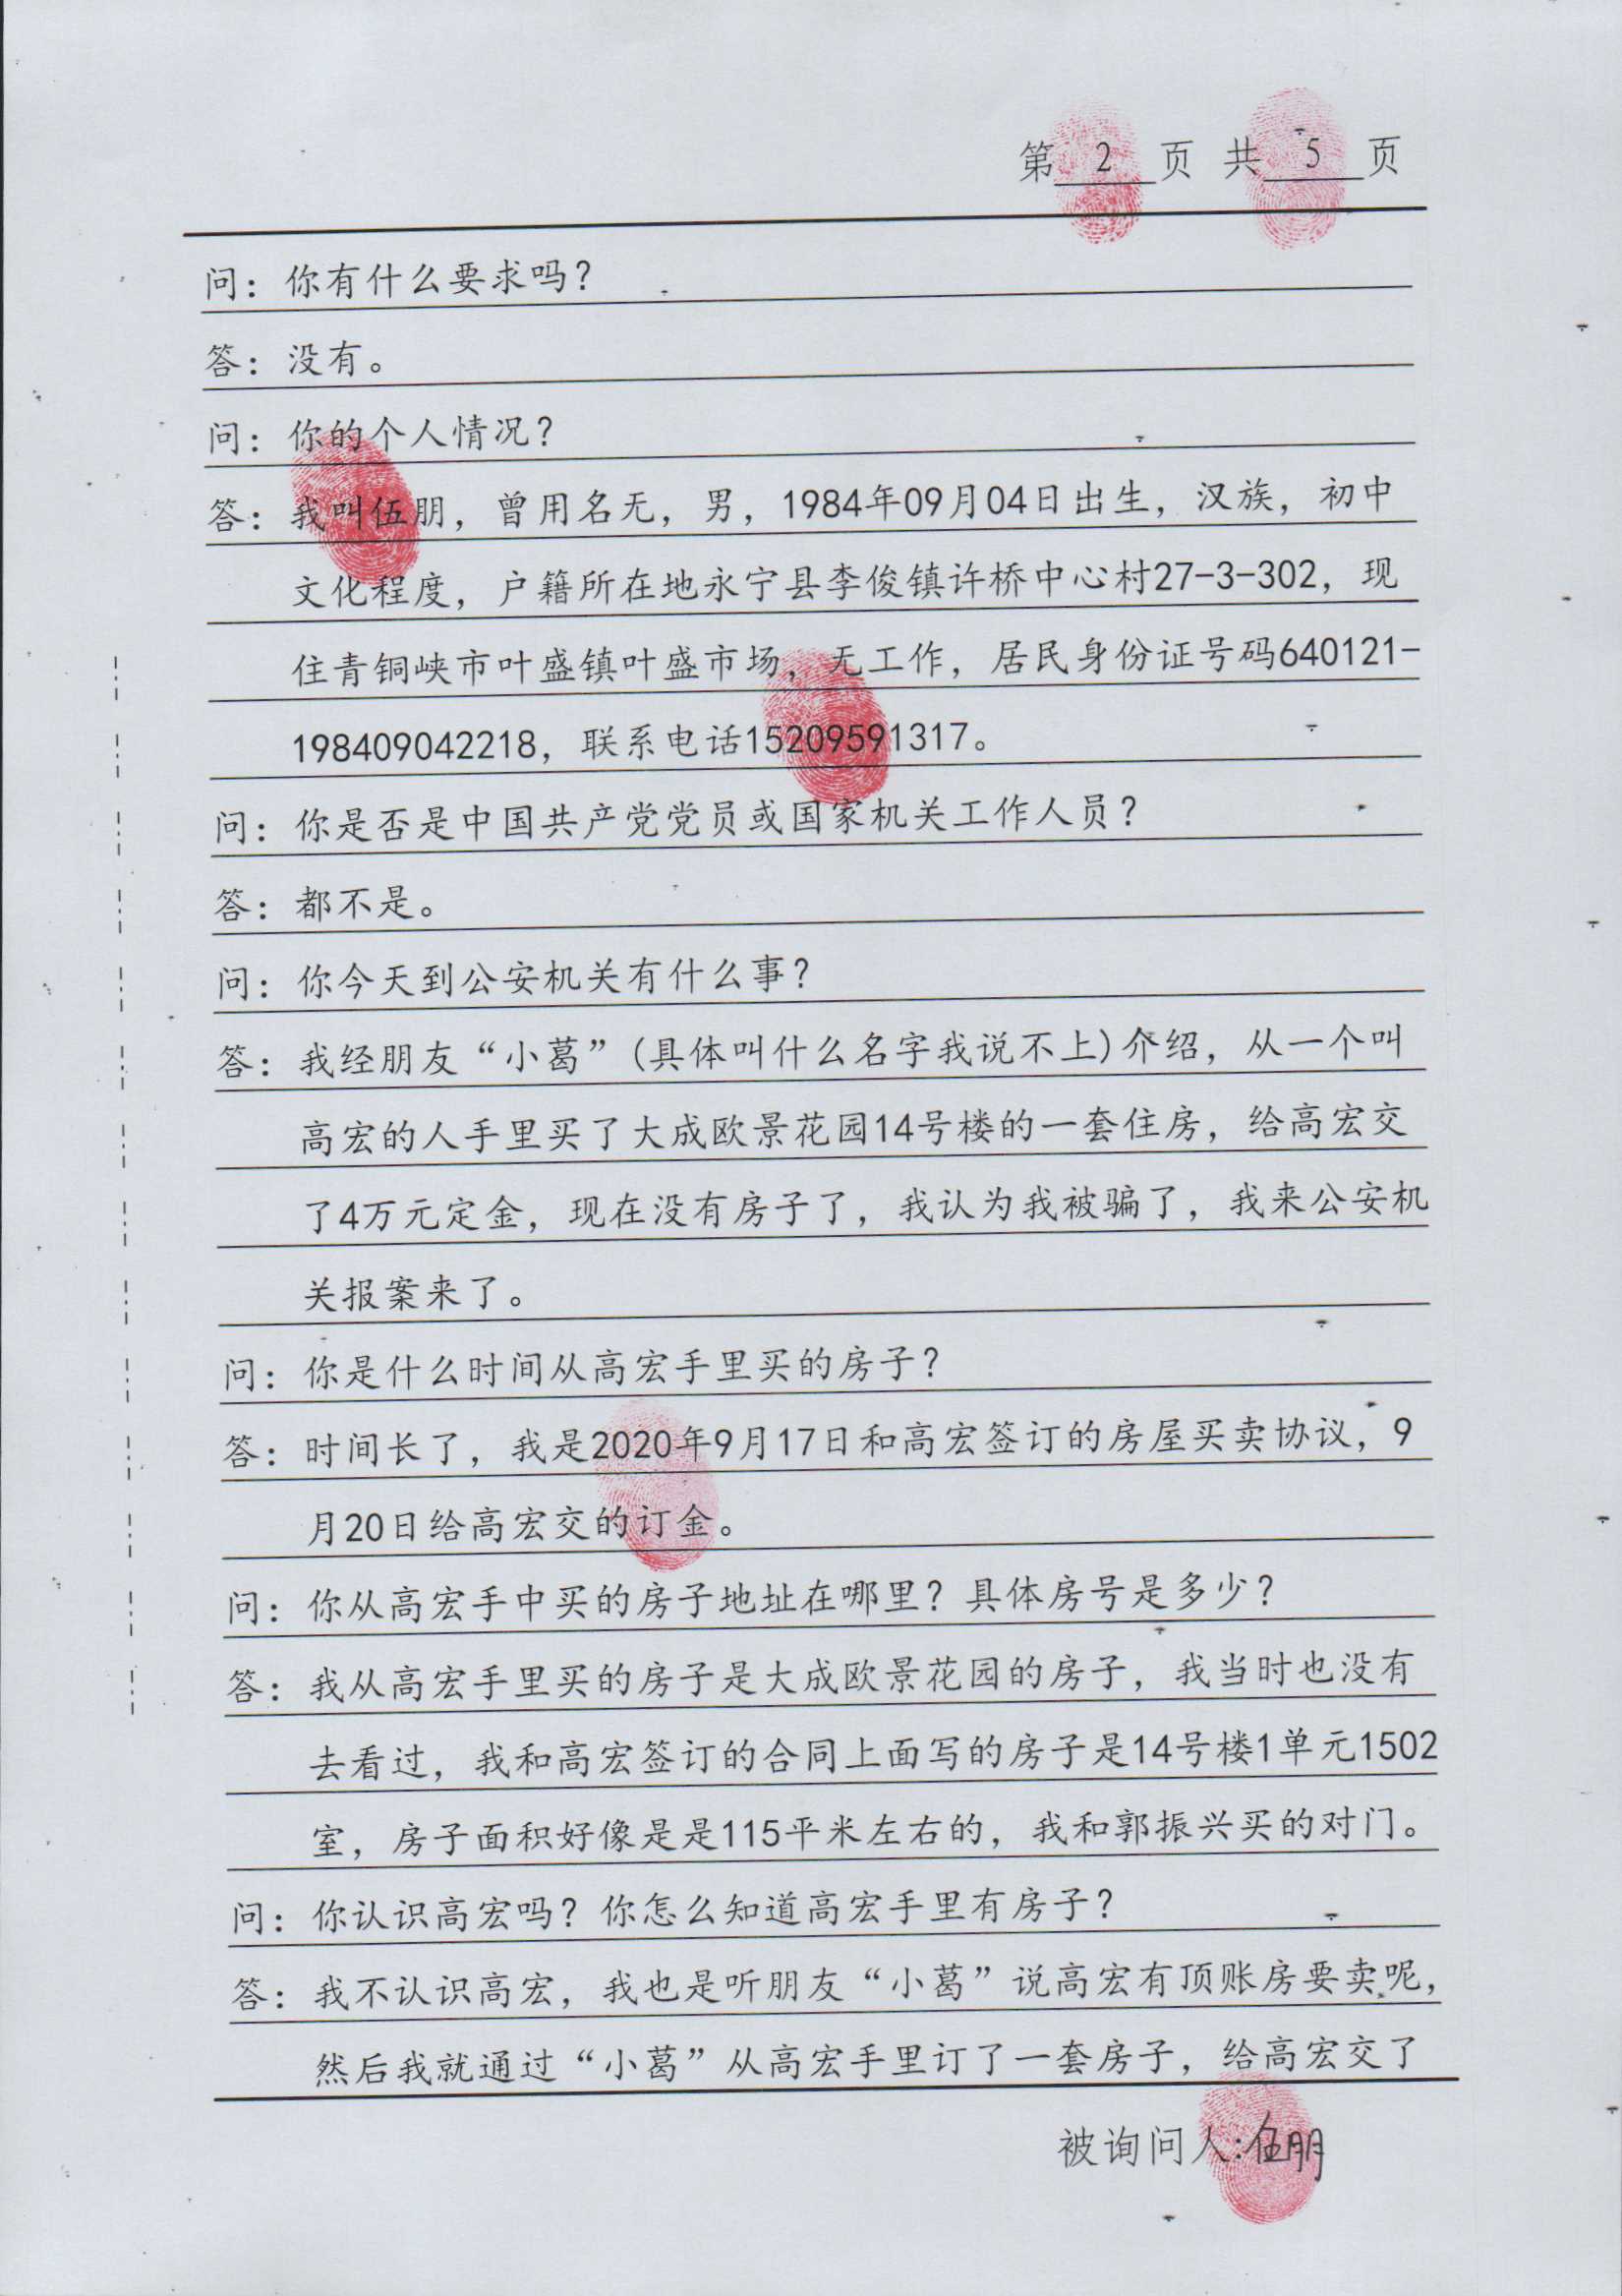 第 2 页 共 5 页
问：你有什么要求吗？
答：没有。
问：你的个人情况？
答：我叫伍朋，曾用名无，男，1984年09月04日出生，汉族，初中
文化程度，户籍所在地永宁县李俊镇许桥中心村27-3-302，现
住青铜峡市叶盛镇叶盛市场，无工作，居民身份证号码640121-
198409042218，联系电话15209591317。
问：你是否是中国共产党党员或国家机关工作人员？
答：都不是。
问：你今天到公安机关有什么事？
答：我经朋友“小葛”(具体叫什么名字我说不上)介绍，从一个叫
高宏的人手里买了大成欧景花园14号楼的一套住房，给高宏交
了4万元定金，现在没有房子了，我认为我被骗了，我来公安机
关报案来了。
问：你是什么时间从高宏手里买的房子？
答：时间长了，我是2020年9月17日和高宏签订的房屋买卖协议，9
月20日给高宏交的订金。
问：你从高宏手中买的房子地址在哪里？具体房号是多少？
答：我从高宏手里买的房子是大成欧景花园的房子，我当时也没有
去看过，我和高宏签订的合同上面写的房子是14号楼1单元1502
室，房子面积好像是是115平米左右的，我和郭振兴买的对门。
问：你认识高宏吗？你怎么知道高宏手里有房子？
答：我不认识高宏，我也是听朋友“小葛”说高宏有顶账房要卖呢，
然后我就通过“小葛”从高宏手里订了一套房子，给高宏交了
被询问人：伍朋